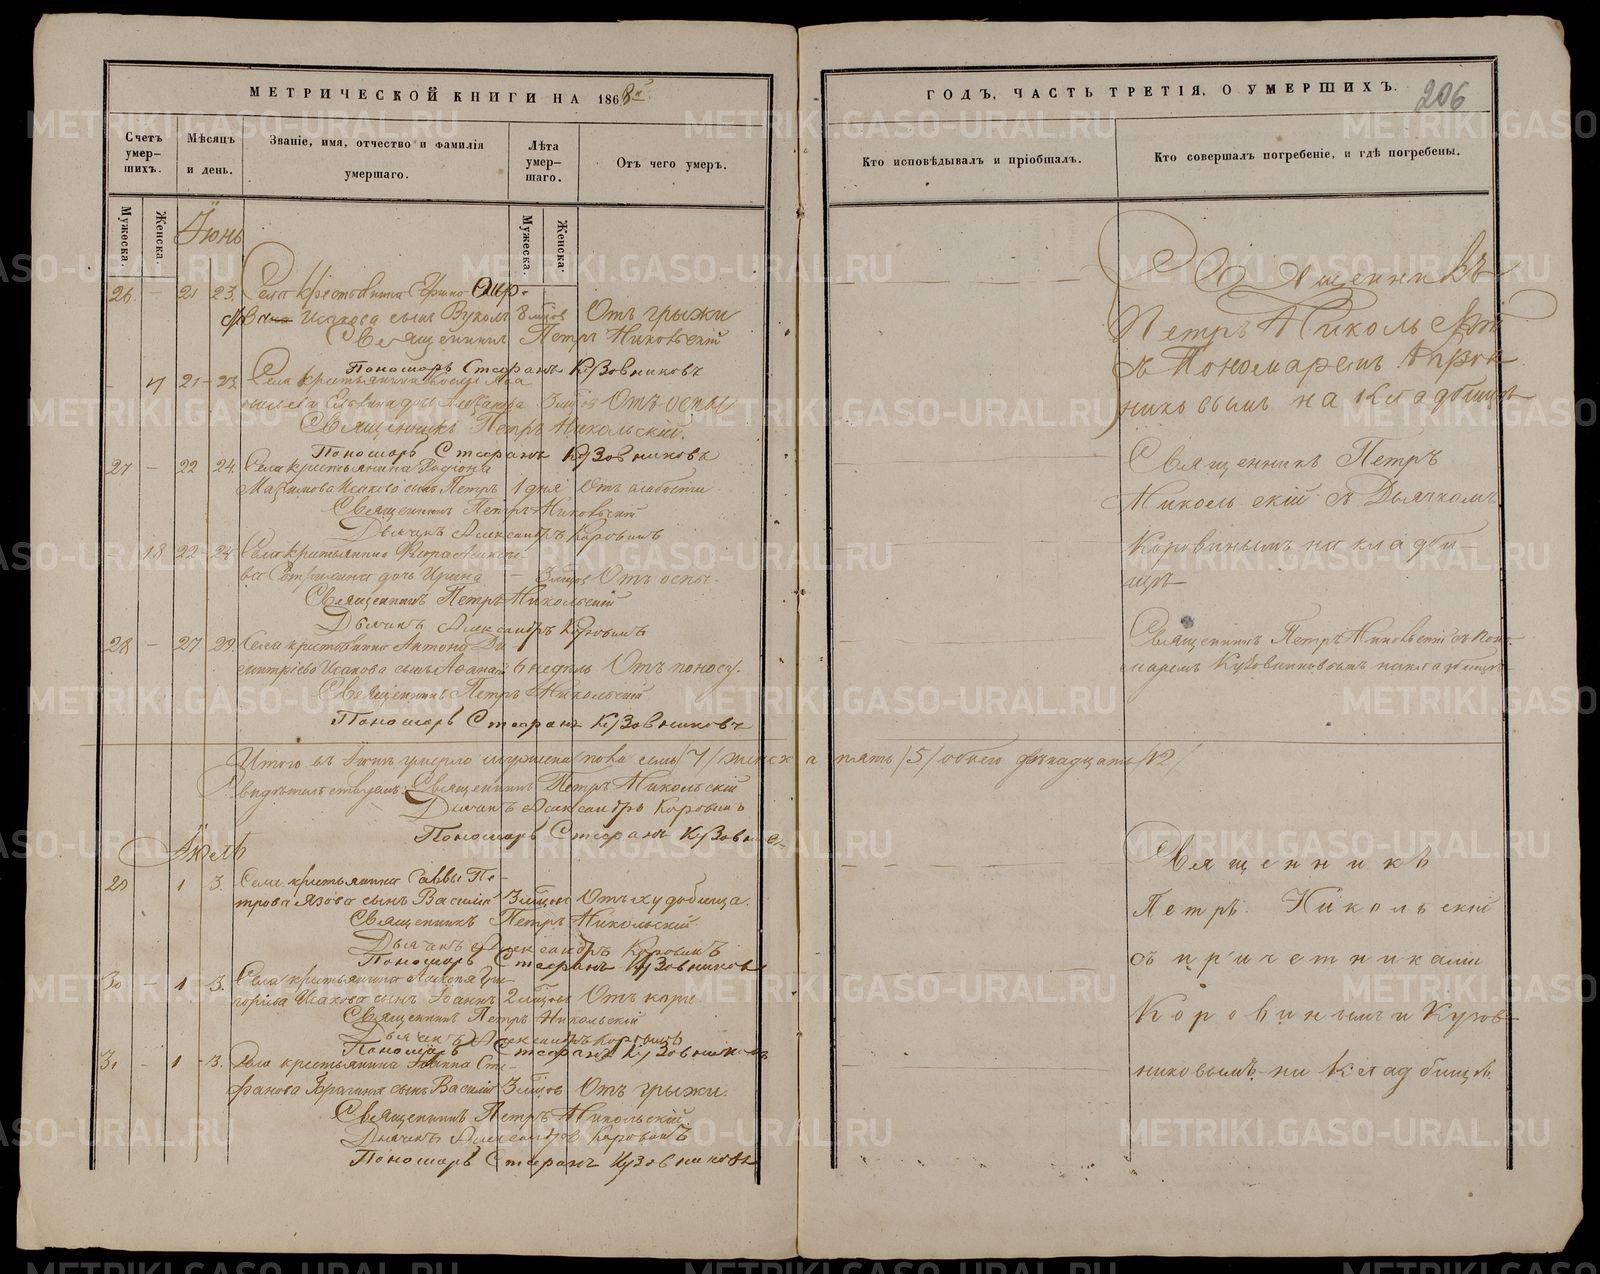 МЕТРИЧЕСКОЙ КНИГИ НА 1868й
ГОДЪ, ЧАСТЬ ТРЕТІЯ, О УМЕРШИХЪ.
206
Счетъ умер-шихъ.
Мѣсяцъ и день.
Званіе, имя, отчество и фамилія умершаго.
Лѣта умер-шаго.
Отъ чего умеръ.
Кто исповѣдывалъ и пріобщалъ.
Кто совершалъ погребеніе, и гдѣ погребены.
Мужеска.
Женска.
Мужеска.
Женска.
Іюнь
26 — 21 23. Села крестьянина
Исакова сынъ Вуколъ 8 мцовъ Отъ грыжи
Священникъ Петръ Никольскій
Пономарь Стефанъ Кузовниковъ
- 17 21 - 23 Села крестьянина
дочь 3 мцовъ Отъ оспы
Священникъ Петръ Никольскій.
Пономарь Стефанъ Кузовниковъ
27 — 22 24. Села крестьянина Родіона
Максимова Исакова сынъ Петръ 1 дня Отъ слабости
Священникъ Петръ Никольскій
Дьячекъ Александръ Коровинъ
18 22 - 24 Села крестьянина
дочь Ирина — 3 мцов Отъ оспы.
Священникъ Петръ Никольскій
Дьячекъ Александръ Коровинъ
28 — 27 29. Села крестьянина Антона Ди-
митріева Исакова сынъ 6 недѣль Отъ поносу.
Священникъ Петръ Никольскій
Пономарь Стефанъ Кузовниковъ
Итого въ Іюнѣ умерло мужеска пола семь /7/ женска пять /5/ обоего двѣнадцать /12/
Священникъ Петръ Никольскій
Дьячекъ Александръ Коровинъ
Пономарь Стефанъ Кузовник
Іюль
29 1 3. Села крестьянина Саввы Пе-
трова сынъ Василій 3 мцов Отъ худобища.
Священникъ Петръ Никольскій
Дьячекъ Александръ Коровинъ
Пономарь Стефанъ Кузовниковъ
30 — 1 - 3. Села крестьянина Гри-
горьева Исакова сынъ Іоаннъ 2 мцов Отъ кори
Священникъ Петръ Никольскій
Дьячекъ Александръ Коровинъ
Пономарь Стефанъ Кузовниковъ
31 - 1 - 3. Села крестьянина Іоанна Сте-
фанова сынъ Василій 3 мцов Отъ грыжи.
Священникъ Петръ Никольскій
Дьячекъ Александръ Коровинъ
Пономарь Стефанъ Кузовниковъ
Священникъ
Петръ Никольскій
съ Пономаремъ
на кладбищѣ
Священникъ Петръ
Никольскій съ Дьячкомъ
Коровинымъ на кладби-
щѣ
Священникъ Петръ Никольскій съ Поно-
маремъ Кузовниковымъ на кладбищѣ
Священникъ
Петръ Никольскій
съ причетниками
Коровинымъ и Кузов-
никовымъ на кладбищѣ.
METRIKI.GASO-URAL.RU